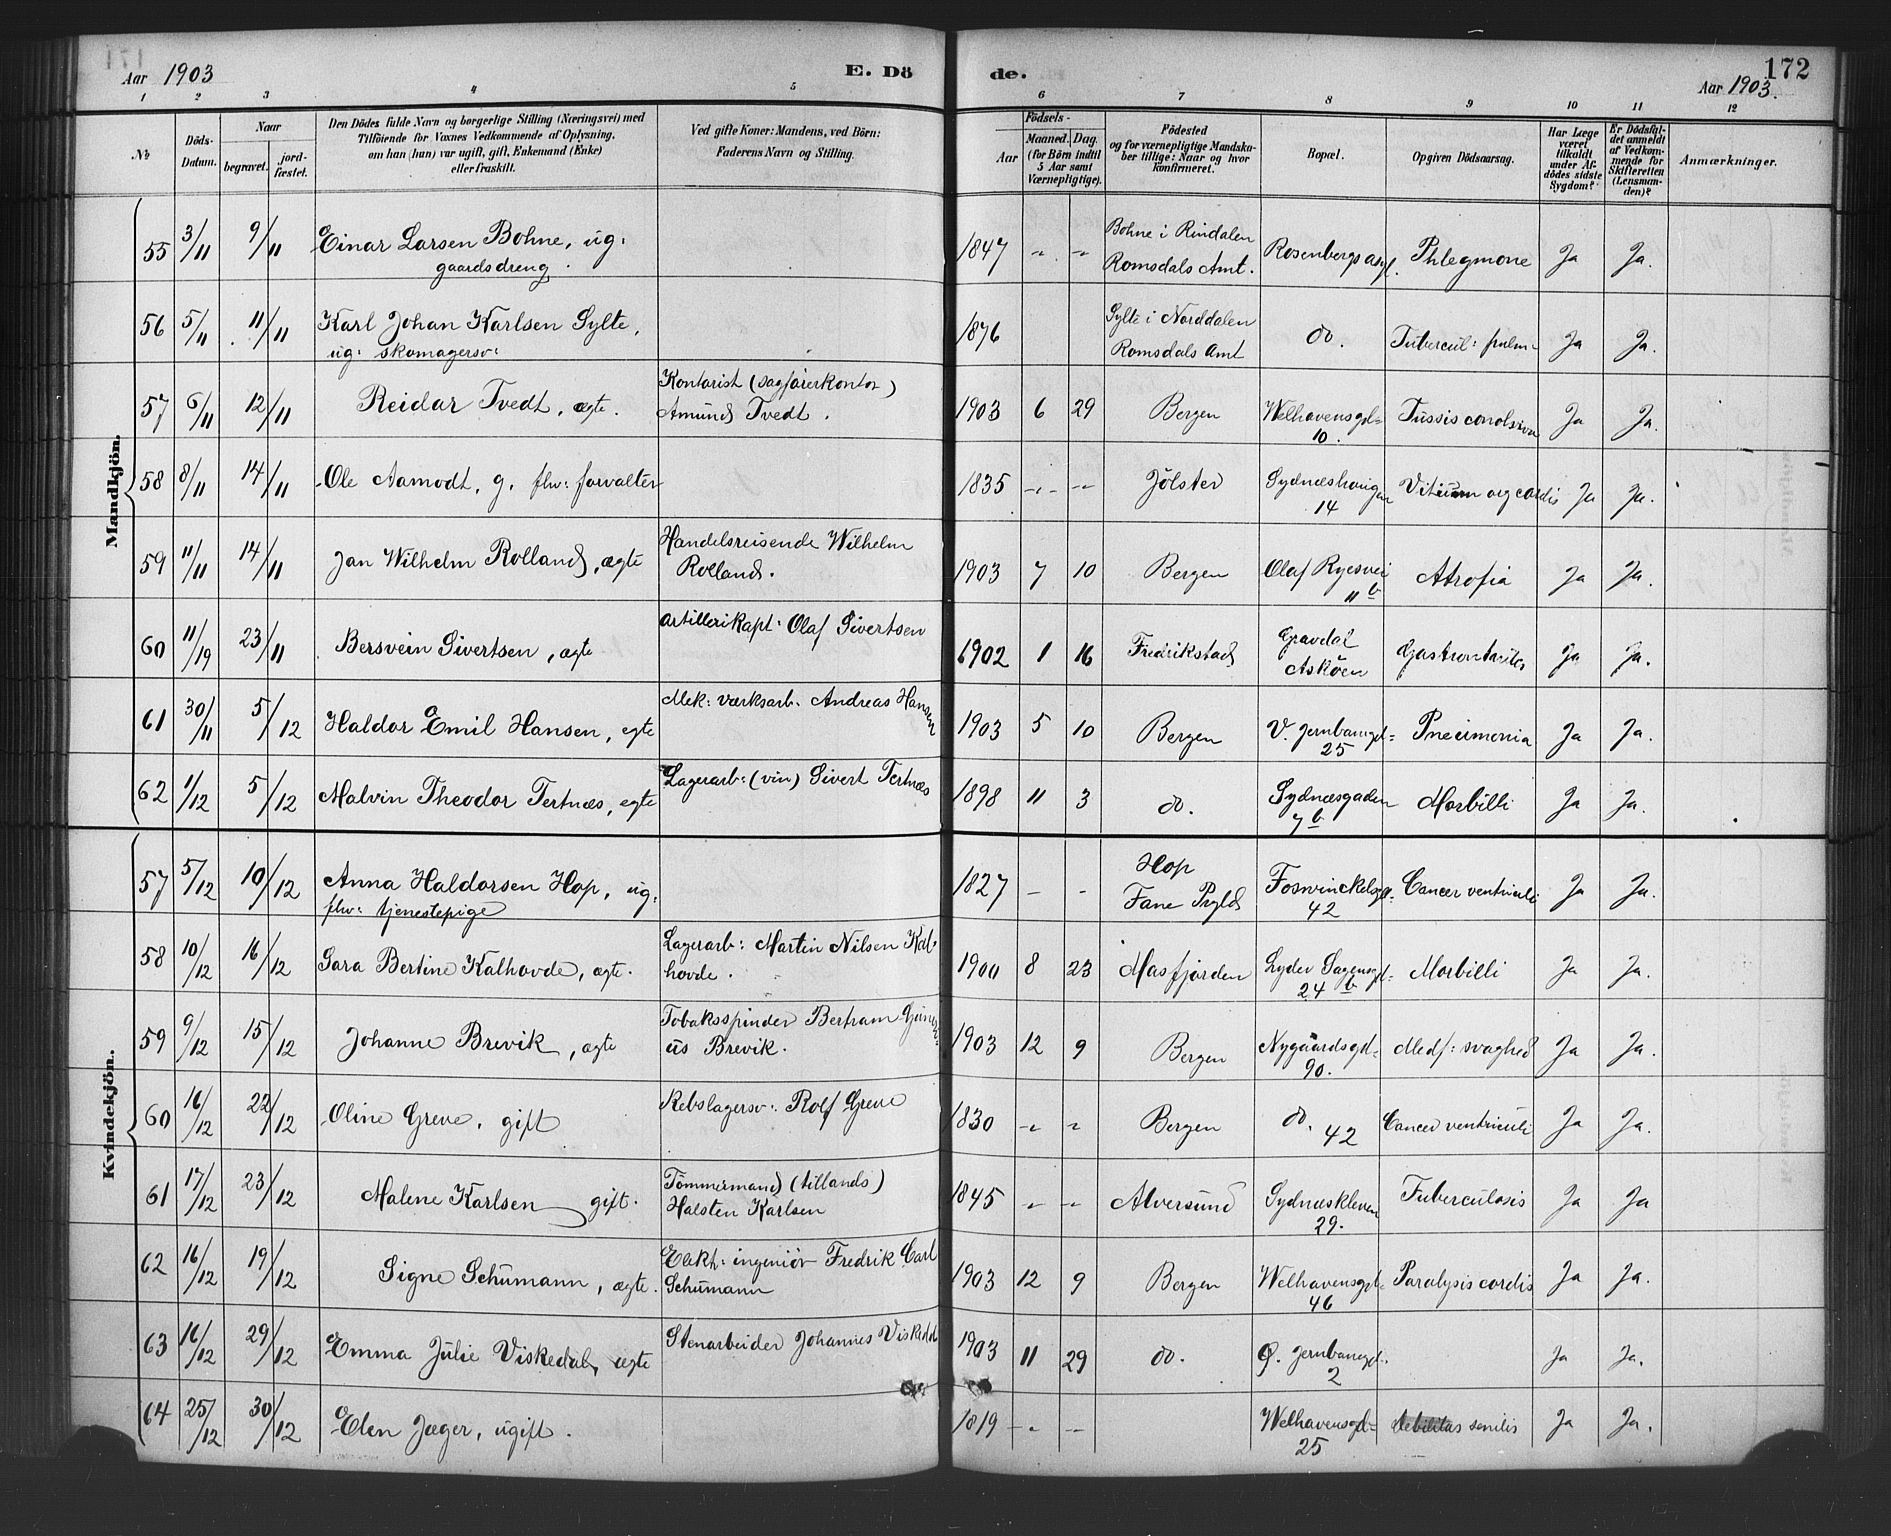 Aar 1903
E. Dö
de.
172
Aar 1903.
1 2 3 4 5 6 7 8 9 10 11 12
№
Döds-
Datum.
Naar
begravet.
jord-
fæstet.
Den Dödes fulde Navn og borgerlige Stilling (Næringsvei) med
Tilföiende for Voxnes Vedkommende af Oplysning,
om han (hun) var ugift, gift, Enkemand (Enke)
eller fraskilt.
Ved gifte Koner: Mandens, ved Börn:
Faderens Navn og Stilling.
Födsels-
Aar
Maaned.
Dag.
(for Börn indtil
5 Aar samt
Værnepligtige).
Födested
og for værnepligtige Mandska-
ber tillige: Naar og hvor
konfirmeret.
Bopæl.
Opgiven Dödsaarsag.
Har Læge
været
tilkaldt
under Af-
dödes sidste
Sygdom?
Er Dödsfal-
det anmeldt
af Vedkom-
mende for
Skifteretten
(Lensman-
den)?
Anmærkninger.
Mandkjön.
55 3/11 9/11 Einar Larsen Bohne, ug: 1847 - - Bohne i Rindalen Rosenbergs asyl. Phlegmone Ja Ja.
gaardsdreng. Romsdals Amt.
56 5/11 11/11 Karl Johan Karlsen Sylte, 1876 Sylte i Norddalen do. Tubercul: pulm- Ja Ja.
ug: skomagersv: Romsdals Amt
57 6/11 12/11 Reidar Tvedt, ægte. Kontorist (sagførerkontor) 1903 6 29 Bergen Welhavensgd= Tussis Ja Ja.
Amund Tvedt. 10.
58 8/11 14/11 Ole Aamodt, g. fhv: forvalter 1835 - - Jölster Sydneshaugen Vitium org cordis Ja Ja.
14
59 11/11 14/11 Jan Wilhelm Rolland, ægte Handelsreisende Wilhelm 1903 7 10 Bergen Olaf Ryesvei Atrofia Ja Ja.
Rolland. 11 b
60 11/19 23/11 Bersvein Sivertsen, ægte Artillerikapt: Olaf Sivertsen 1902 1 16 Fredrikstad Gravdal Ja Ja.
Askøen
61 30/11 5/12 Haldor Emil Hansen, egte Mek: værksarb. Andreas Hansen 1903 5 10 Bergen V. Jernbanegd= Pneumonia Ja Ja.
25
62 1/12 5/12 Malvin Theodor Tertnæs, egte Lagerarb: (vin) Sivert Tertnæs 1898 11 3 do. Sydnæsgaden Morbilli Ja Ja.
7 b
Kvindekjön.
57 5/12 10/12 Anna Haldorsen Hop, ug: 1827 - - Hop Fosvinckelsgd= Cancer ventriculi Ja Ja.
fhv: tjenestepige Fane Prgld 42
58 10/12 16/12 Sara Bertine Kalhovde, ægte. Lagerarb: Martin Nilsen Kal- 1900 8 23 Masfjorden Lyder Sagensgd= Morbilli Ja Ja.
hovde. 24 b
59 9/12 15/12 Johanne Brevik, ægte Tobaksspinder Bertram 1903 12 9 Bergen Nygaardsgd= Medf: svaghed Ja Ja.
us Brevik. 90.
60 16/12 22/12 Oline Greve, gift Rebslagersv: Rolf Greve 1830 - - Bergen do. 42 Cancer ventriculi Ja Ja.
61 17/12 23/12 Malene Karlsen gift. Tømmermand (tillands) 1845 - - Alversund Sydneskleven Tuberculosis Ja Ja
Halsten Karlsen 29.
62 16/12 19/12 Signe Schumann, ægte. Elekt: ingeniør Fredrik Carl 1903 12 9 Bergen Welhavensgd= Paralysis cordis Ja Ja.
Schumann 46
63 16/12 29/12 Emma Julie Viskedal, ægte Stenarbeider Johannes Viskedal 1903 11 29 do. Ø. Jernbanegd. Ja Ja.
2
64 25/12 30/12 Elen Jæger, ugift. 1819 - - Welhavensgd= debilitas senilis Ja Ja.
25